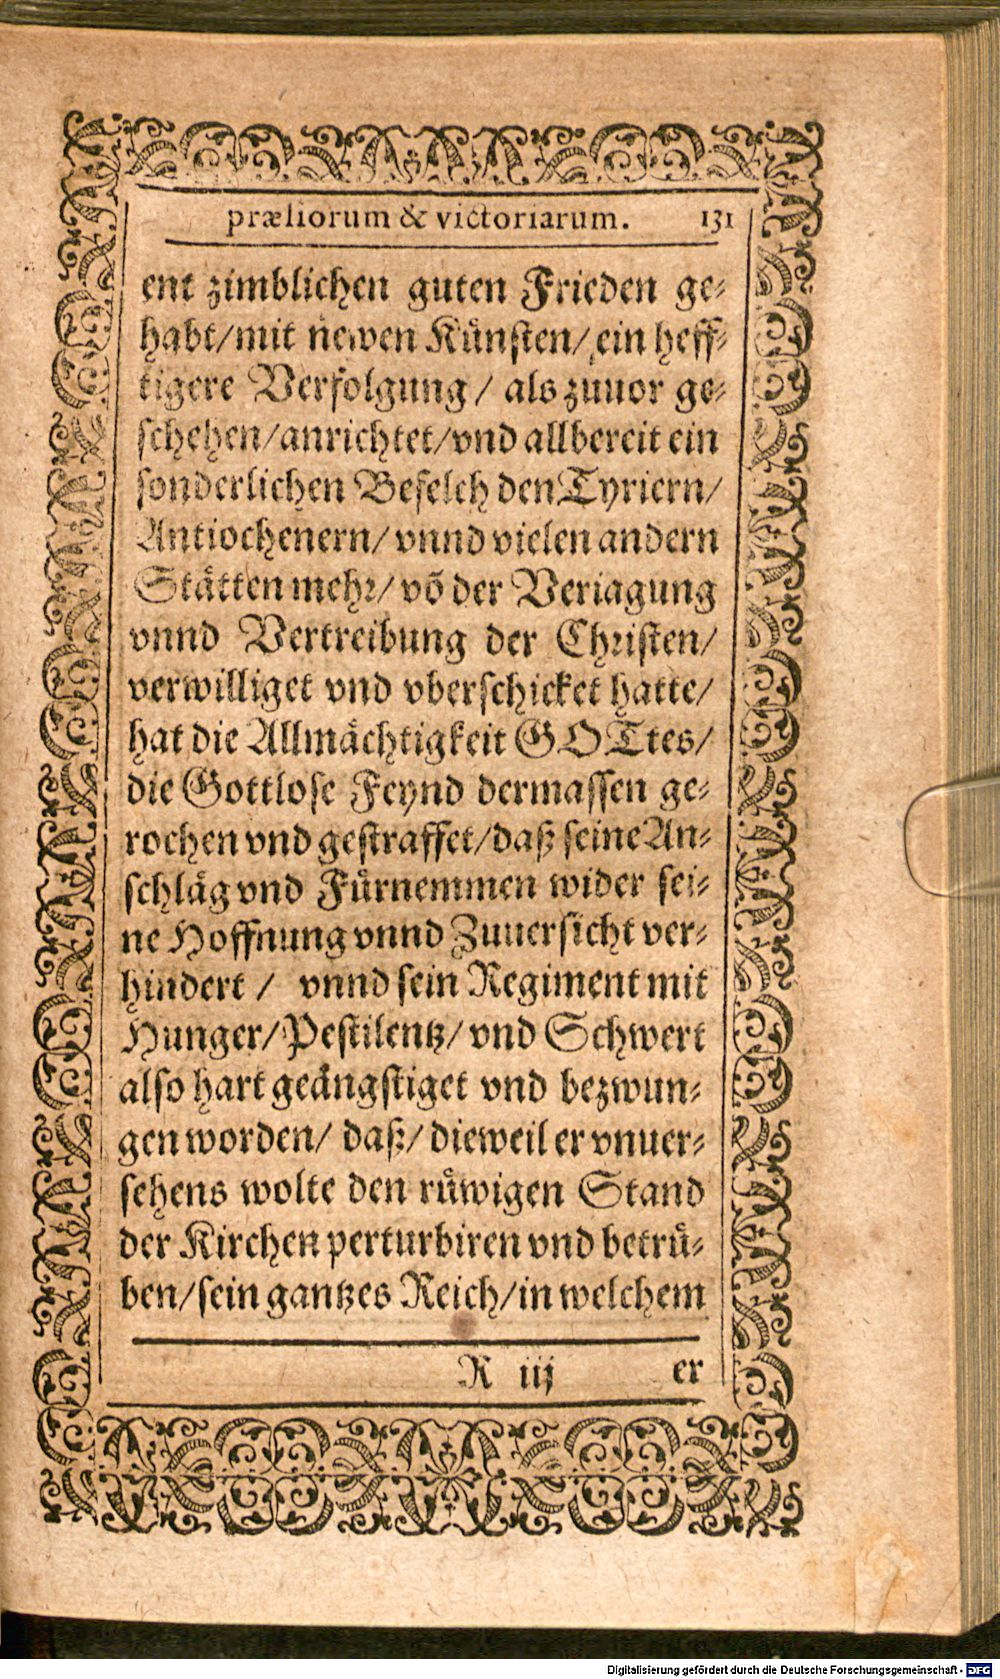 præliorum & victoriarum. 131
ent zimblichen guten Frieden ge⸗
habt/mit newen Künsten/ ein heff⸗
tigere Verfolgung / als zuuor ge⸗
schehen/anrichtet/vnd allbereit ein
sonderlichen Befelch den Tyriern/
Antiochenern/ vnnd vielen andern
Stätten mehr/ võ der Veriagung
vnnd Vertreibung der Christen/
verwilliget vnd vberschicket hatte/
hat die Allmächtigkeit GOTtes/
die Gottlose Feynd dermassen ge⸗
rochen vnd gestraffet/daß seine An⸗
schläg vnd Fürnemmen wider sei⸗
ne Hoffnung vnnd Zuuersicht ver⸗
hindert / vnnd sein Regiment mit
Hunger/Pestilentz/ vnd Schwert
also hart geängstiget vnd bezwun⸗
gen worden/ daß/ dieweil er vnuer⸗
sehens wolte den rüwigen Stand
der Kirchen perturbiren vnd betrü⸗
ben/sein gantzes Reich/in welchem
R iij er
Digitalisierung gefördert durch die Deutsche Forschungsgemeinschaft - DFG